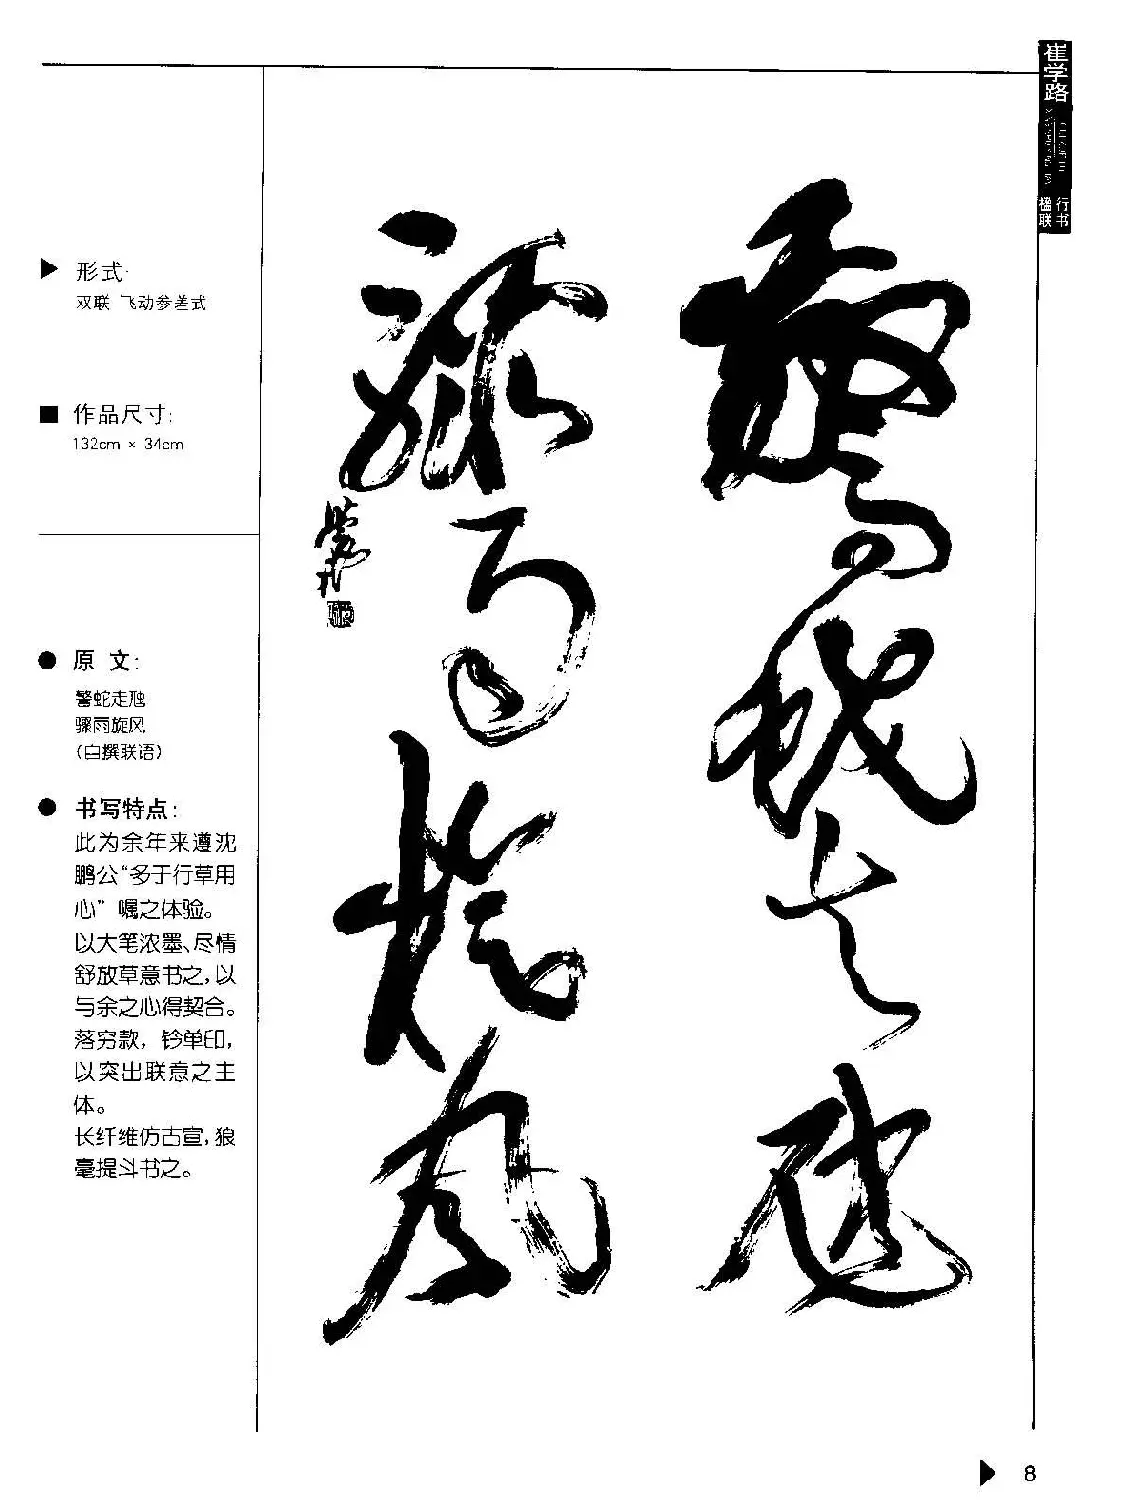 崔学路
行书
楹联
形式:
双联 飞动参差式
作品尺寸:
132cm × 34cm
原 文:
警蛇走虺
骤雨旋风
(自撰联语)
书写特点:
此为余年来遵沈
鹏公“多于行草用
心”嘱之体验。
以大笔浓墨、尽情
舒放草意书之,以
与余之心得契合。
落穷款,钤单印,
以突出联意之主
体。
长纤维仿古宣,狼
毫提斗书之。
驚蛇走虺
驟雨旋風
8